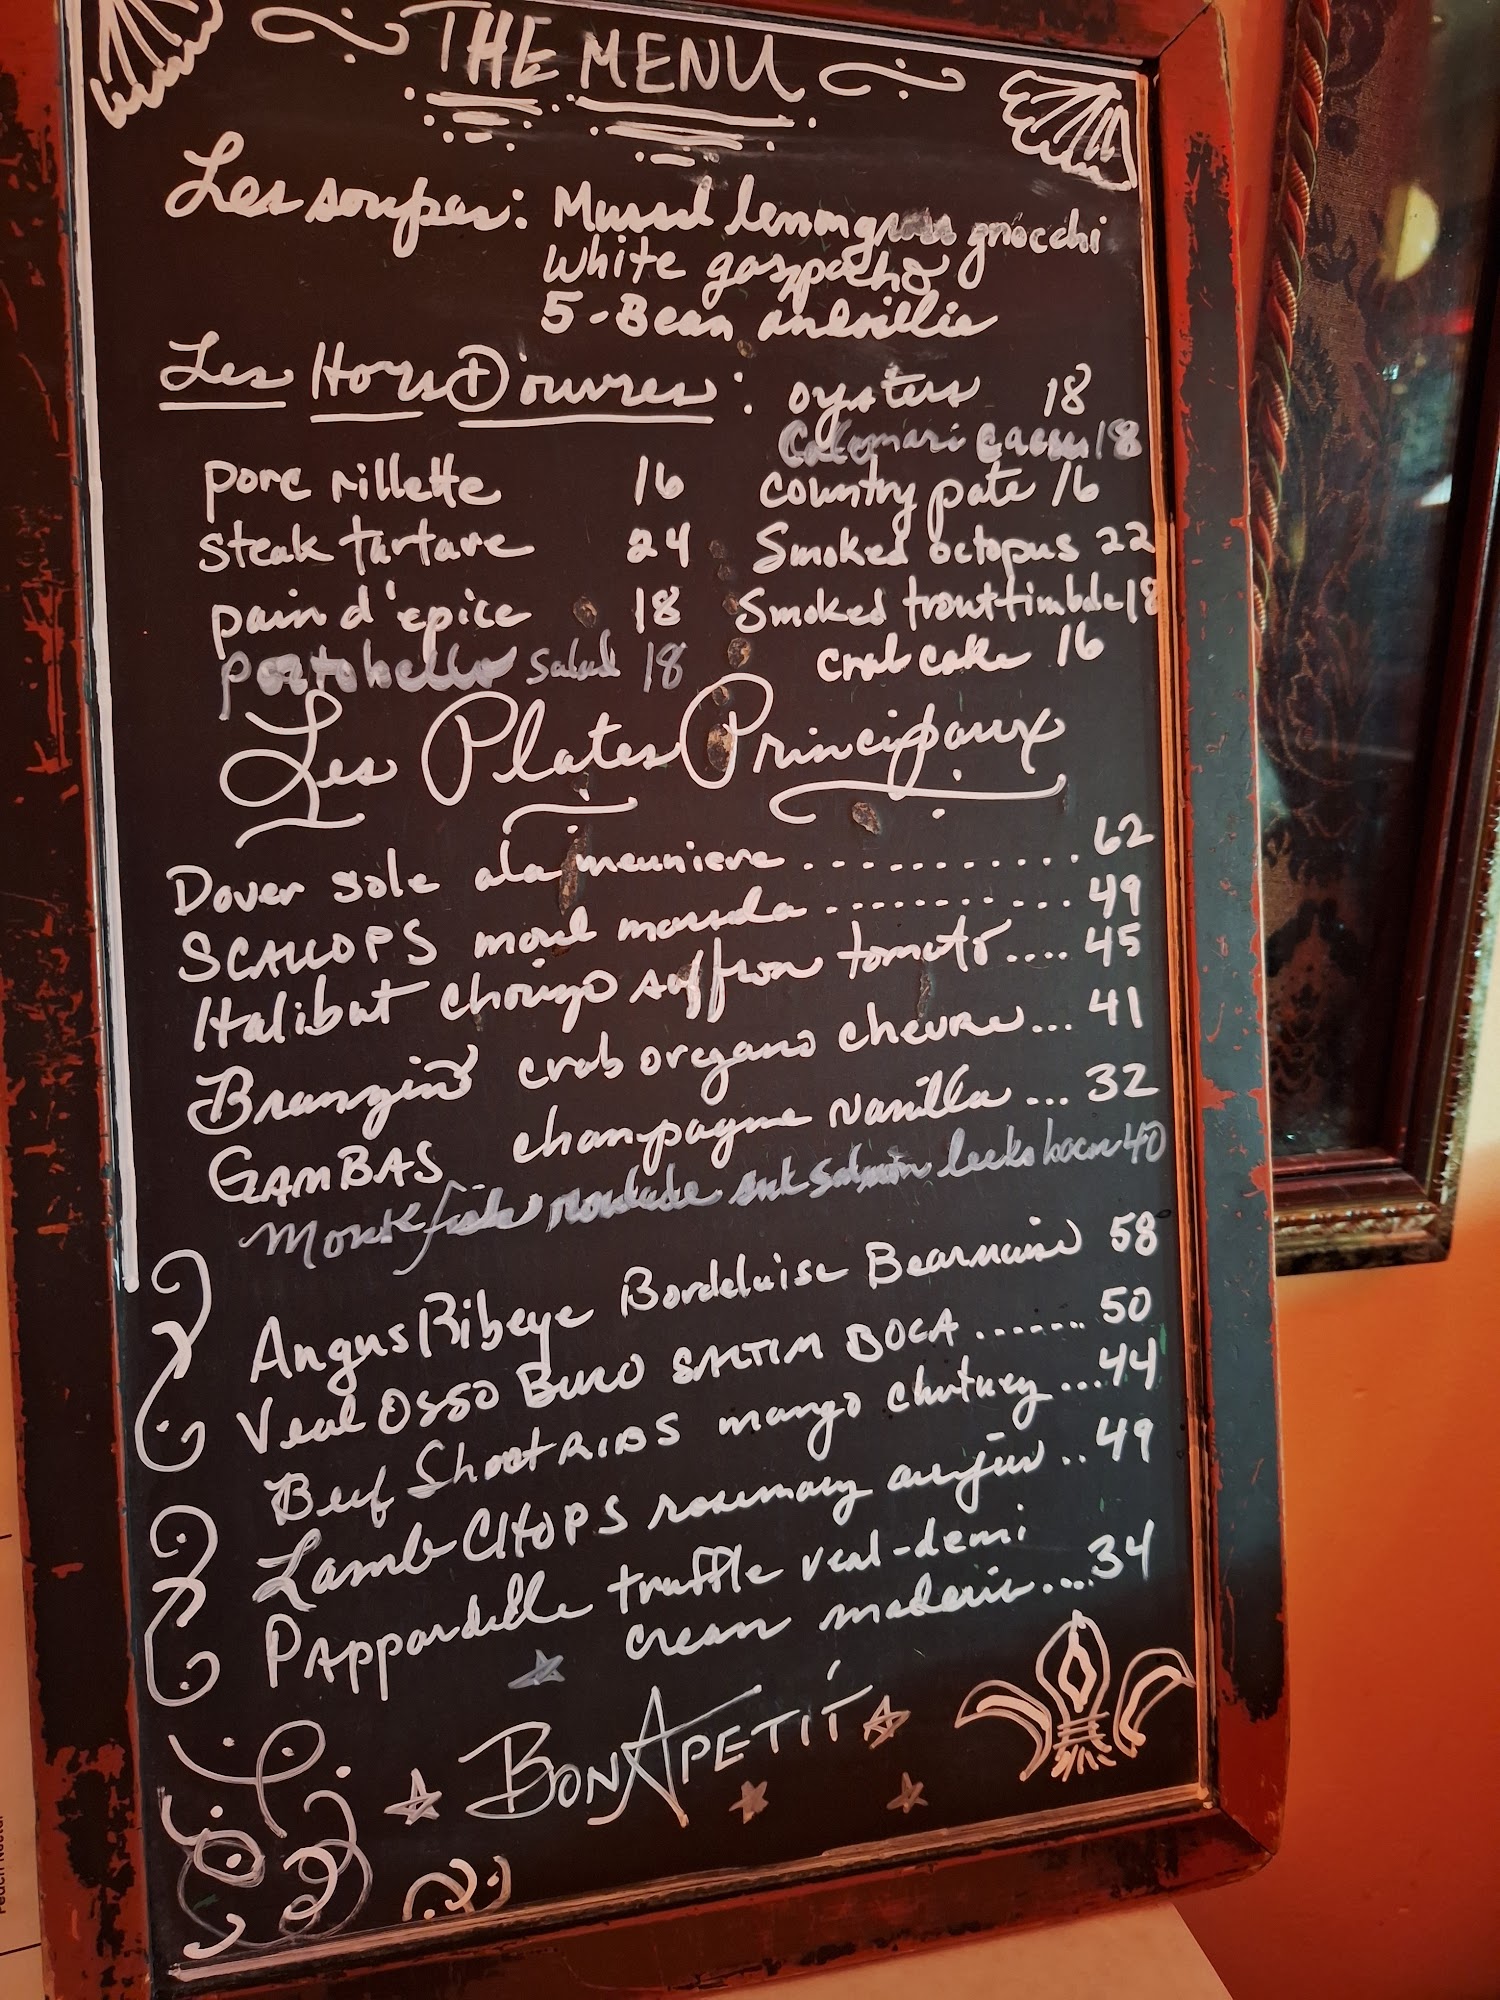 THE MENU
Les soupes: Mussel lemongrass gnocchi
White gazpacho
5-Bean
Les Hors D'ouvres: oysters 18
Calamari 18
porc rillette 16 country pate 16
steak tartare 24 Smoked octopus 22
pain d'epice 18 Smoked trout timbale 18
portobello salad 18 crab cake 16
Les Plates Principaux
Dover sole ala meuniere ........... 62
SCALLOPS morel marsala .......... 49
Halibut chorizo saffron tomato .... 45
Branzino crab oregano chevre... 41
GAMBAS champagne vanilla ... 32
Monkfish salmon leeks bacon 40
Angus Ribeye Bordelaise Bearnaise 58
Veal OSSO BUCO SALTIM BOCA ....... 50
Beef Short RIBS mango chutney ...44
Lamb CHOPS rosemary au jus .. 49
PAppardelle truffle veal-demi
cream madeira .... 34
BON APETIT